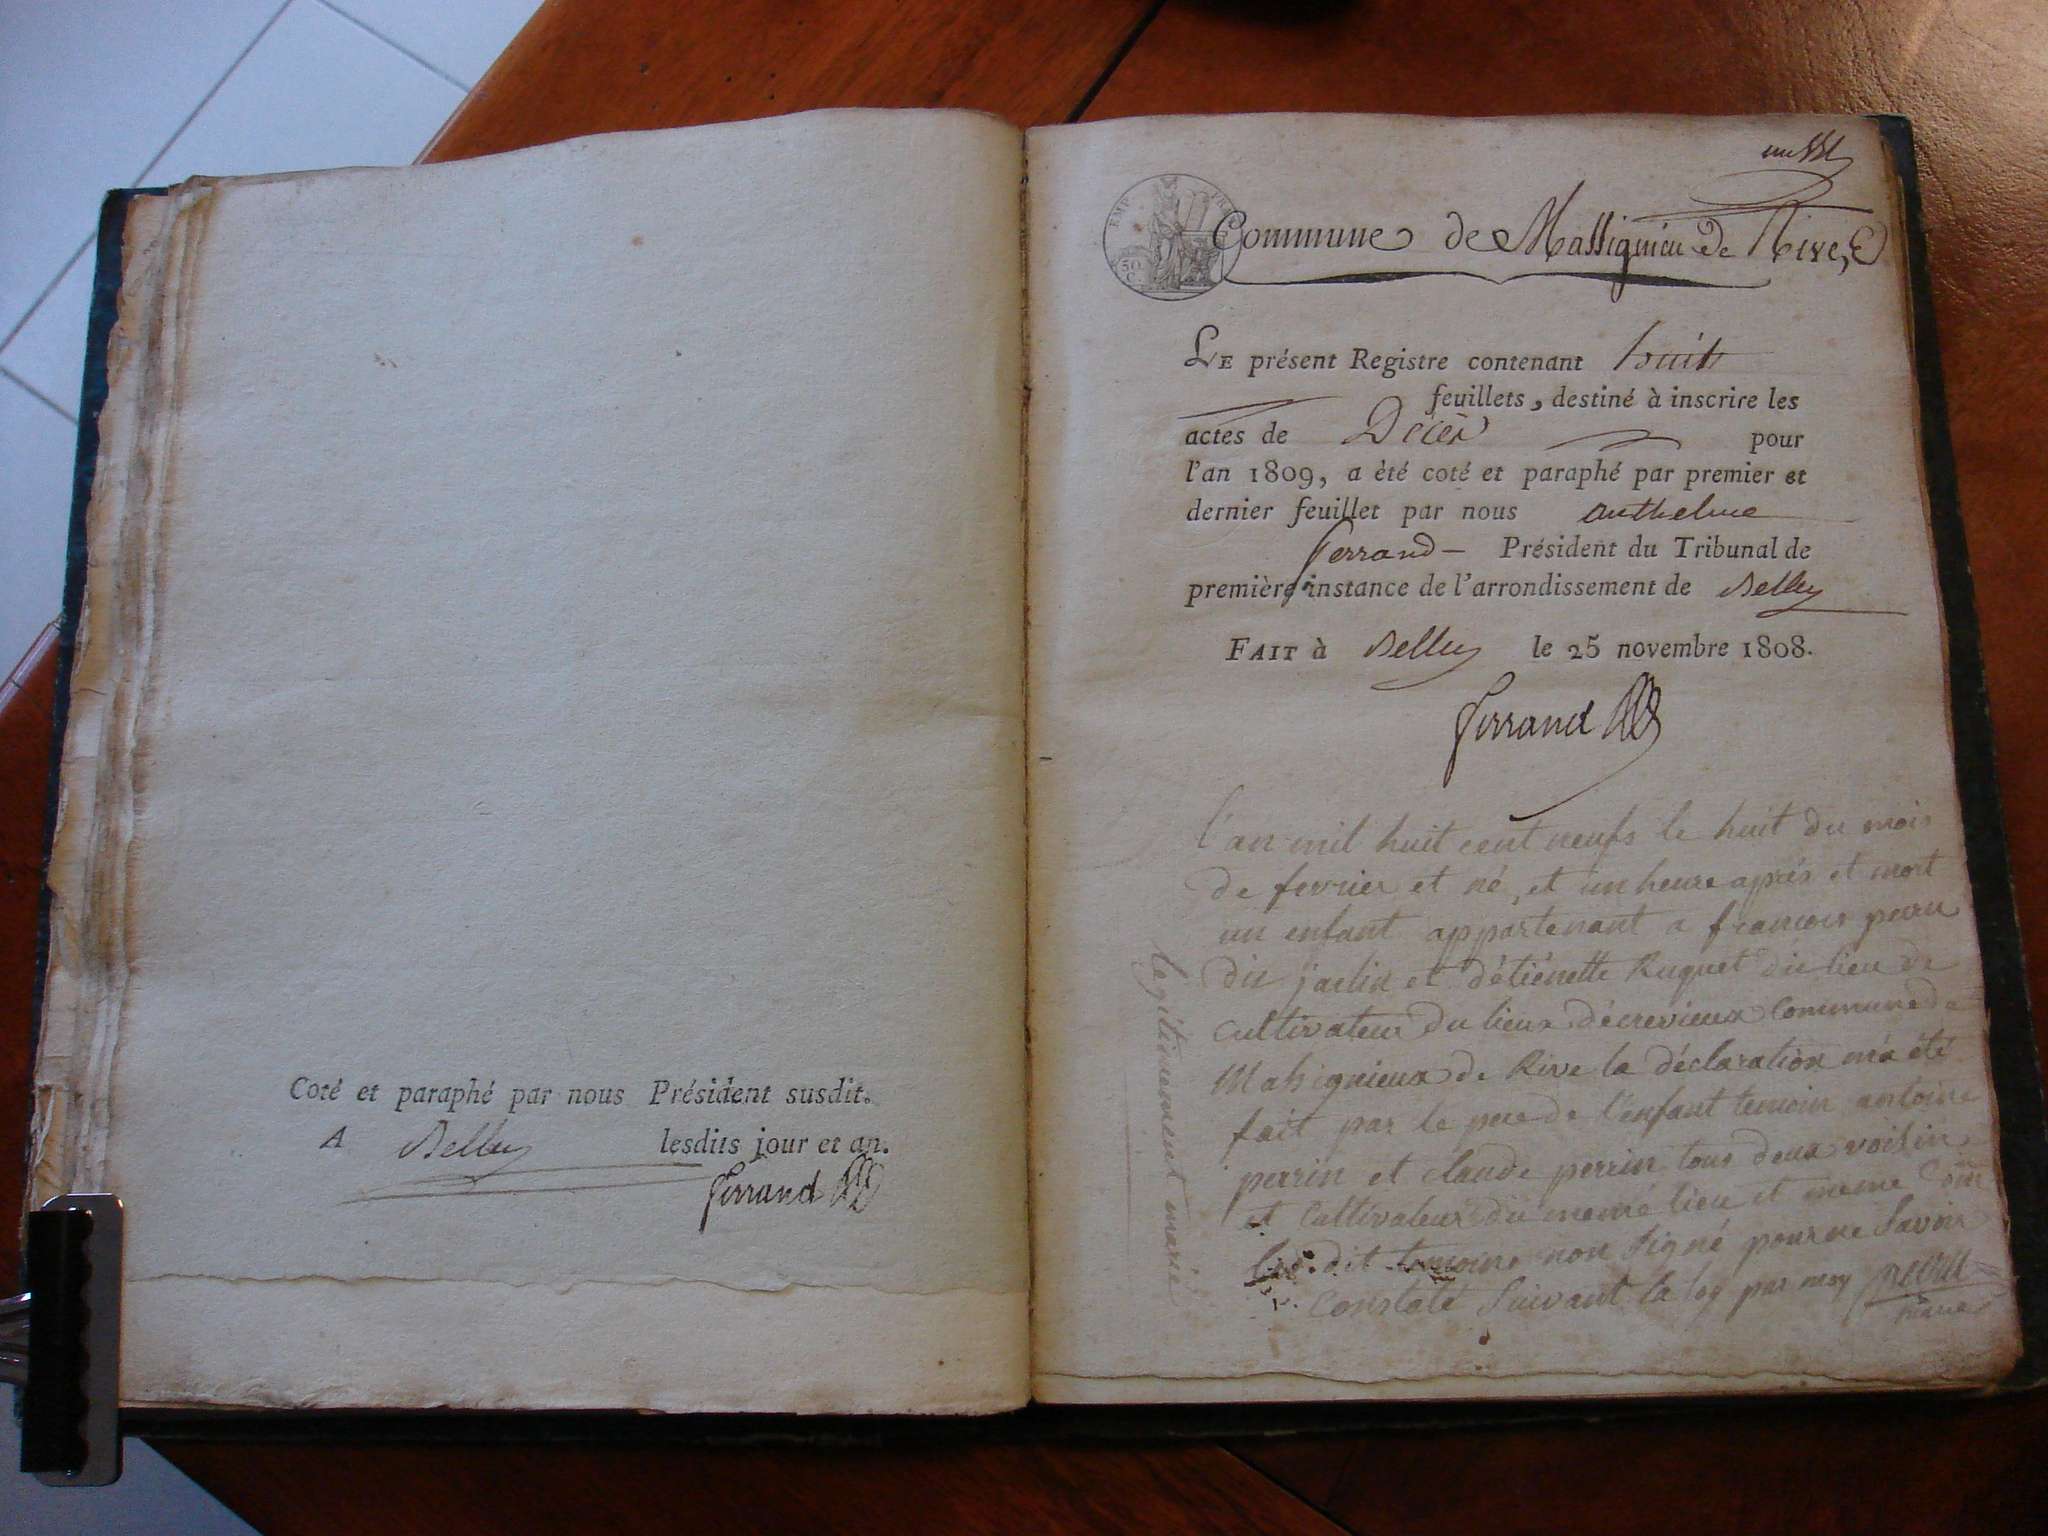 Coté et paraphé par nous Président susdit.
A Belley lesdits jour et an.
Ferrand
un
EMP FRAN
50 C
Commune de Massignieu de Rive,
LE présent Registre contenant huit
feuillets, destiné à inscrire les
actes de Décès pour
l'an 1809, a èté coté et paraphé par premier et
dernier feuillet par nous anthelme
ferrand - Président du Tribunal de
première instance de l'arrondissement de Belley
FAIT à Belley le 25 novembre 1808.
Ferrand
l'an mil huit cent neufs le huit du mois
de fevrier et né, et un heure aprés et mort
un enfant appartenant a francois
dit et d'étiénette Ruguet du lieu de
cultivateur du lieux décrevieux commune de
Massignieux de Rive la déclaration m'a été
fait par le pere de l'enfant temoin antoine
perrin et claude perrin tous deux voisin
et cultivateur du meme lieu et meme Com
les dit temoins non signé pour ne savoir
constaté suivant la loy par moy
maire
legitimement marié